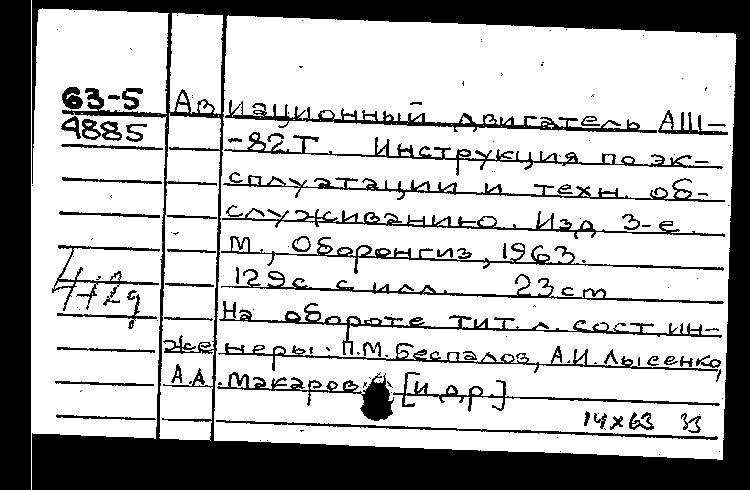 63-5 Авиационный двигатель АШ-
4885 -82Т. Инструкция по эк-
сплуатации и техн. об-
служиванию. Изд. 3-е.
М., Оборонгиз, 1963.
129с с илл. 23см
На обороте тит. л. сост. ин-
женеры: П.М. Беспалов, А.И. Лысенко,
А.А. Макаров [и др.]
14х63